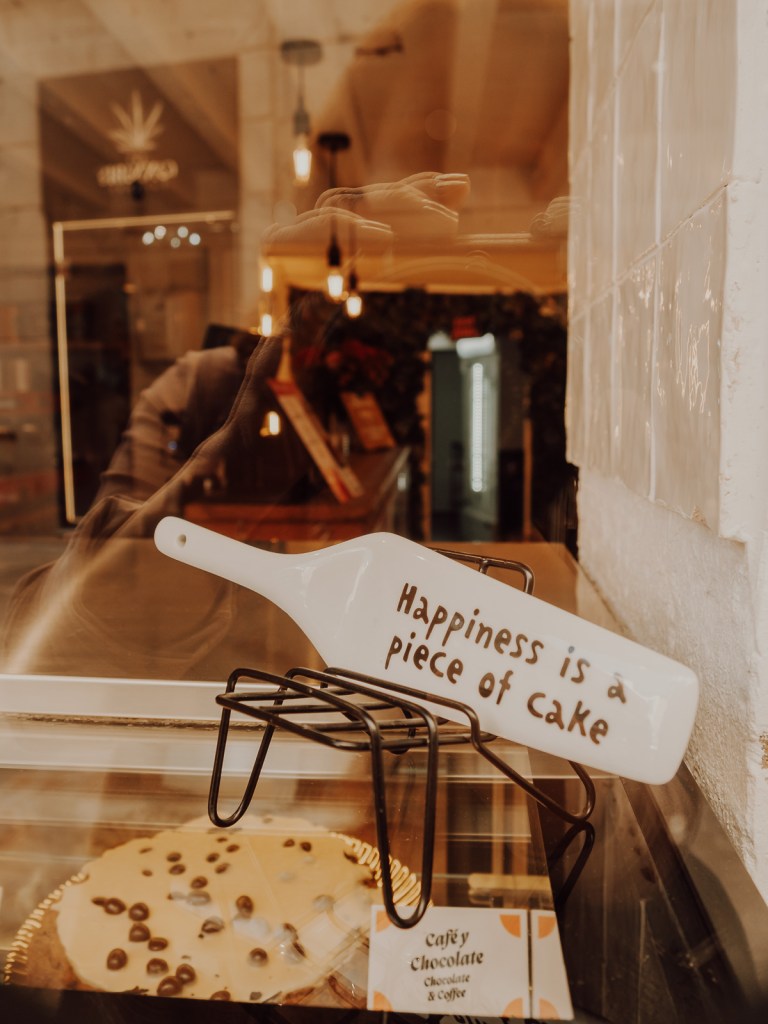 Happiness is a
piece of cake
Café y
Chocolate
Chocolate
& Coffee